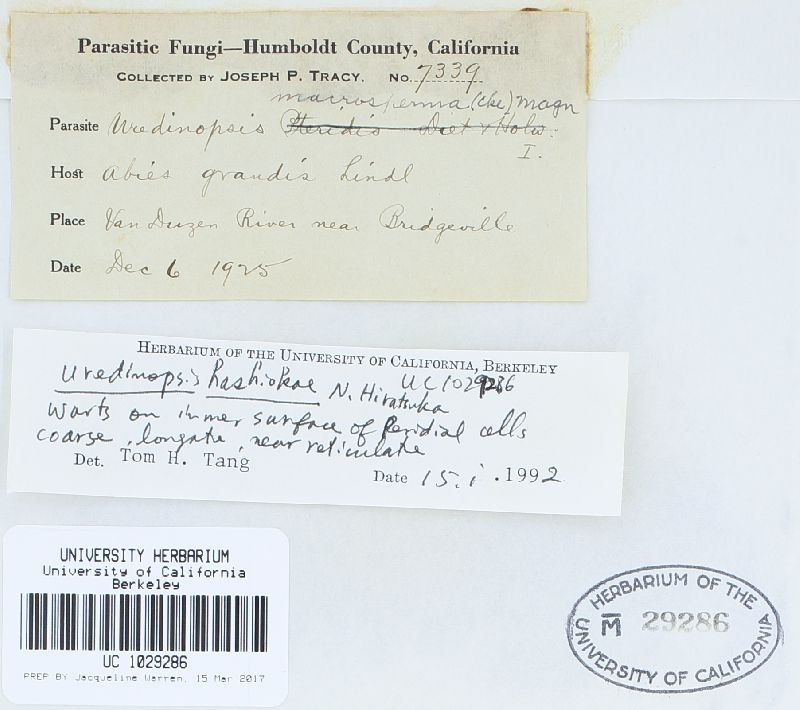 Parasitic Fungi—Humboldt County, California
COLLECTED BY JOSEPH P. TRACY. No. 7339
macrosperma (Cke) Magn
Parasite Uredinopsis Pteridis Diet & Holw.
I.
Host Abies grandis Lindl
Place Van Duzen River near Bridgeville
Date Dec 6 1925
HERBARIUM OF THE UNIVERSITY OF CALIFORNIA, BERKELEY
UC 1029286
Uredinopsis hashiokae N. Hiratsuka
Warts on inner surface of Peridial cells
coarse, longate, near reticulate
Det. Tom H. Tang
Date 15. i .1992
UNIVERSITY HERBARIUM
University of California
Berkeley
UC 1029286
PREP BY Jacqueline Warren, 15 Mar 2017
HERBARIUM OF THE
M 29286
UNIVERSITY OF CALIFORNIA